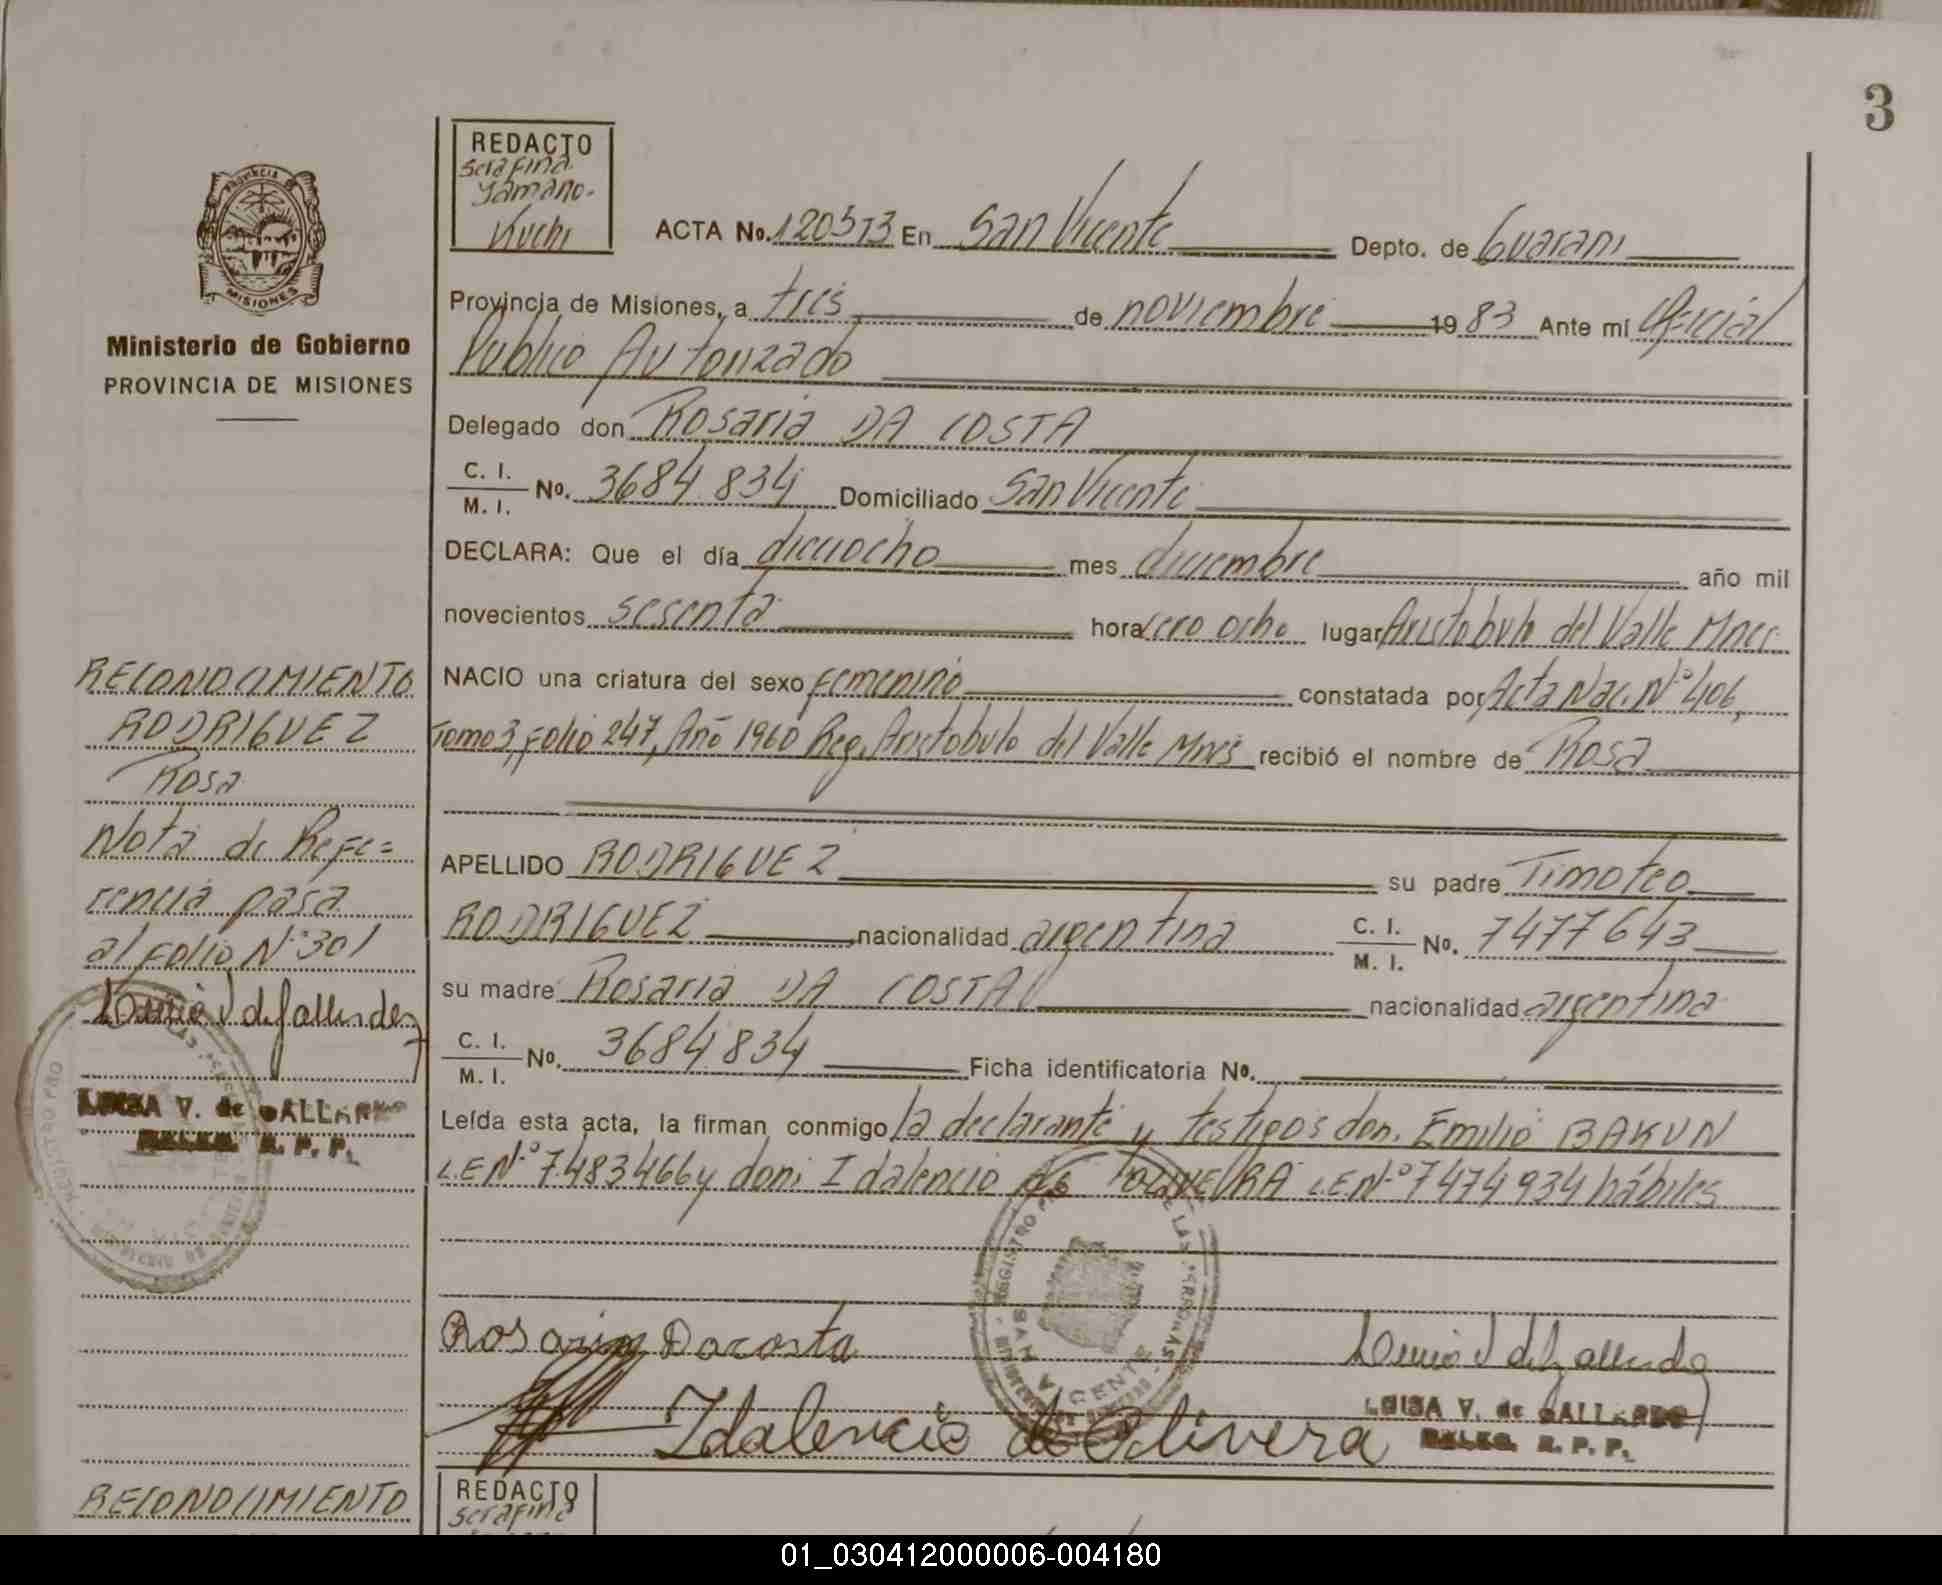 3
REDACTO
Serafina
Yamano-
Kuchi
ACTA No. 120513 En San Vicente Depto. de Guarani
Provincia de Misiones, a tres de noviembre 1983 Ante mi Oficial
Publico Autorizado
Delegado don Rosaria DA COSTA
C. I.
M. I. No. 3684834 Domiciliado San Vicente
DECLARA: Que el día dieciocho mes diciembre año mil
novecientos sesenta hora cero ocho lugar Aristobulo del Valle Mnes
NACIO una criatura del sexo femenino constatada por Acta Nac. Nº 406,
Tomo 3, folio 247, Año 1960 Reg. Aristobulo del Valle Mnes recibió el nombre de Rosa
APELLIDO RODRIGUEZ su padre Timoteo
RODRIGUEZ nacionalidad argentina C. I.
M. I. No. 7477643
su madre Rosaria DA COSTA nacionalidad argentina
C. I.
M. I. No. 3684834 Ficha identificatoria No.
Leída esta acta, la firman conmigo la declarante y testigos don. Emilio BAKUN
L.E Nº 7483466 y don: Idalencio de OLIVEIRA L.E Nº 7474934 hábiles
Rosaria Dacosta
Idalencio de Olivera
LUISA V. de GALLARDO
R. P. P.
PROVINCIA DE
MISIONES
Ministerio de Gobierno
PROVINCIA DE MISIONES
RECONOCIMIENTO
RODRIGUEZ
Rosa
Nota de Refe=
rencia pasa
al folio Nº 301
LUISA V. de GALLARDO
R. P. P.
RECONOCIMIENTO
REDACTO
Serafina
01_030412000006-004180